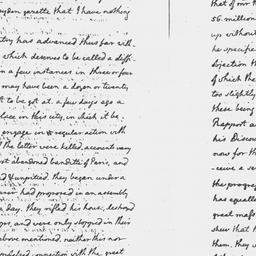 leyden gazette that I have nothing
try has advanced thus far with
which deserves to be called a diffi-
n a few instances in three or four
may have been a dozen or twenty
t to be got at. a few days ago a
lace in this city, in which it be
engage in regular action with
of the latter were killed, account vary
ost abandoned banditti of Paris, and
d & unpitied. they began under a
had proposed in an assembly
a day. they rifled his house, destroyed
and were only stopped in their
above mentioned, neither this nor
connection with the great
that of mr
56. million
up without
he specifie
objection th
of which the
too slightly
these being
Rapport a
his Discou
now for th
-ceive a se
the progre
has equalle
great mass
shew that
them. they